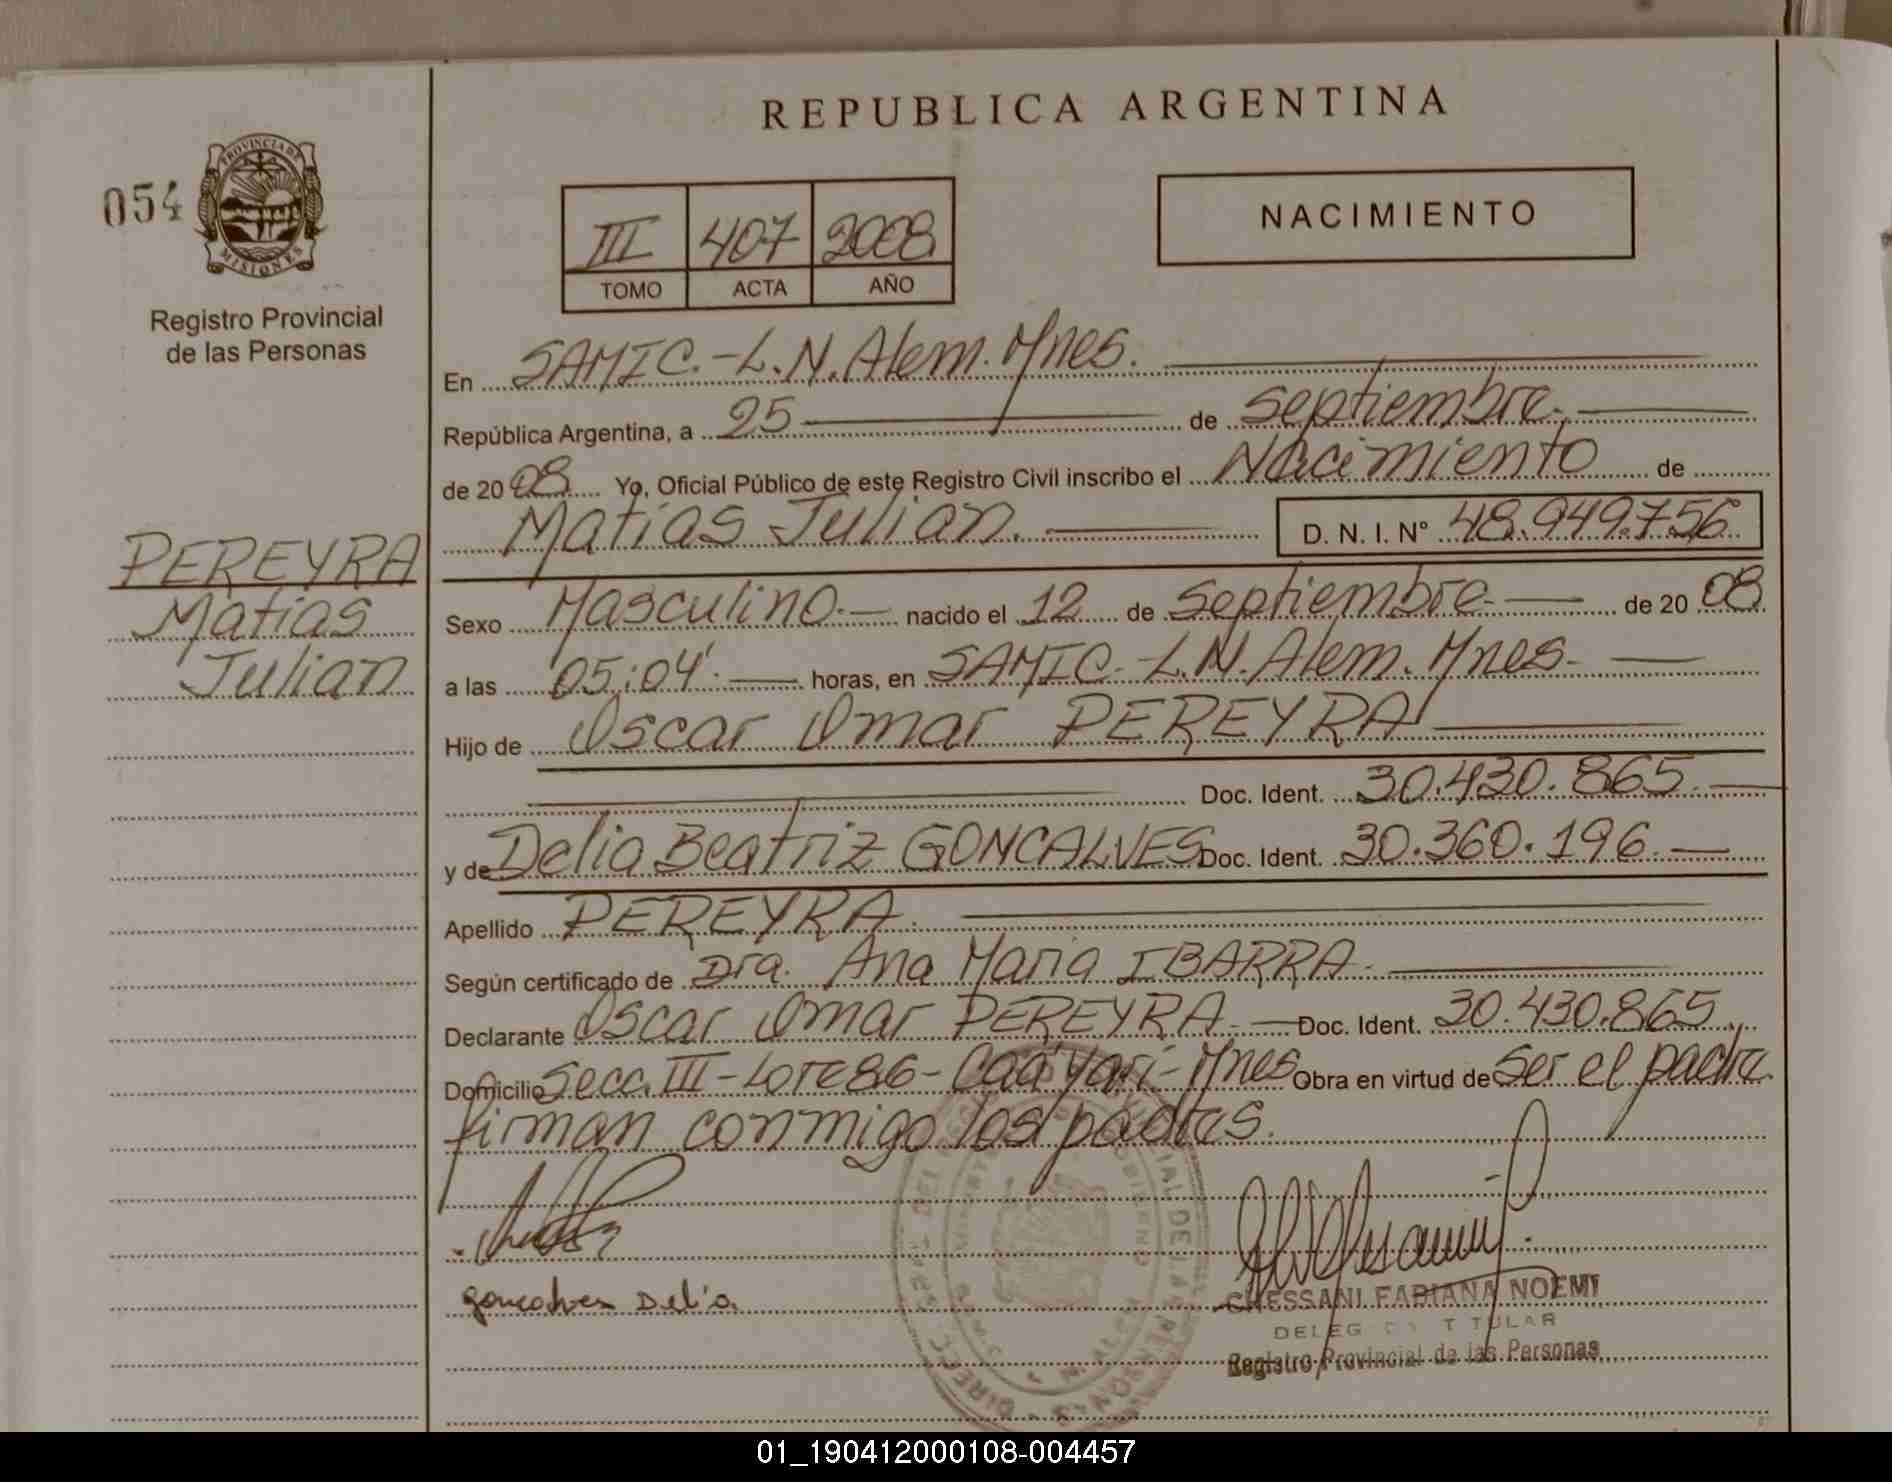 REPUBLICA ARGENTINA
054
PROVINCIA DE
MISIONES
Registro Provincial
de las Personas
III 407 2008
TOMO ACTA AÑO
NACIMIENTO
En SAMIC.-L.N.Alem.Mnes.
República Argentina, a 25 de Septiembre.
de 2008 Yo, Oficial Público de este Registro Civil inscribo el Nacimiento de
Matias Julian. D. N. I. Nº 48.949.756
PEREYRA
Matias
Julian
Sexo Masculino. nacido el 12 de Septiembre. de 2008
a las 05:04'. horas, en SAMIC.-L.N.Alem.Mnes.
Hijo de Oscar Omar PEREYRA
Doc. Ident. 30.430.865.
y de Delia Beatriz GONCALVES Doc. Ident. 30.360.196.
Apellido PEREYRA.
Según certificado de Dra. Ana Maria IBARRA.
Declarante Oscar Omar PEREYRA. Doc. Ident. 30.430.865.
Domicilio Secc. III-Lote 86-Caá Yarí-Mnes Obra en virtud de Ser el padre
firman conmigo los padres.
goncalves Delia
CHESSANI FABIANA NOEMI
TITULAR
Registro Provincial de las Personas
01_190412000108-004457